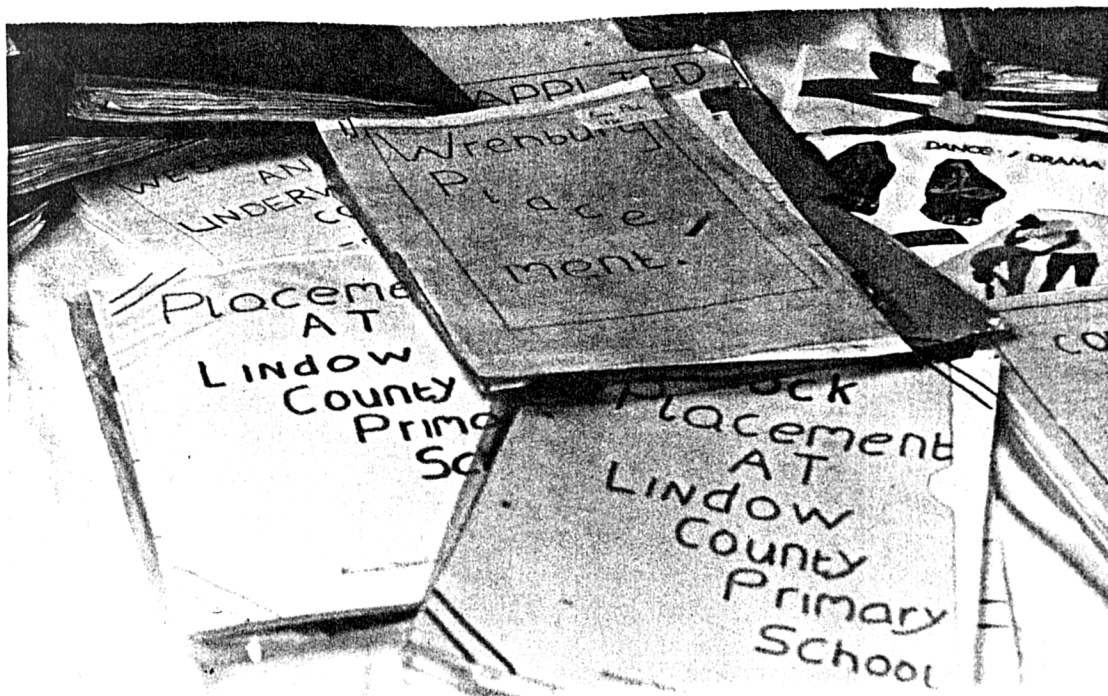 APPLIED
Wrenbury
Place/
ment.
DANCE / DRAMA
WE
AN
UNDERW
CO
Placeme
AT
LINDOW
County
Prima
Sch
ock
Placement
AT
LINDOW
County
Primary
School
CO